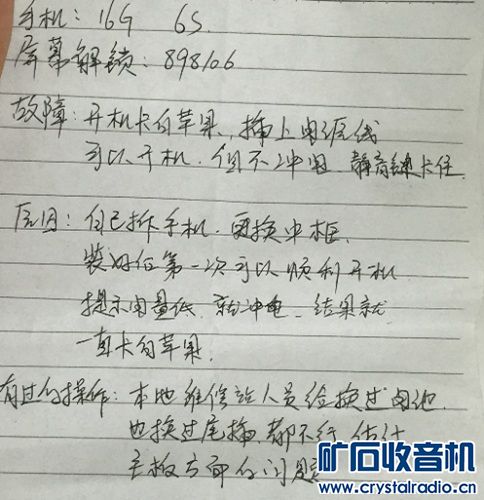 手机：16G 6S
屏幕解锁：898106
故障：开机卡白苹果，插上电源线
可以开机，但不冲电，静音键卡住
原因：自己拆手机，更换中框，
装好后第一次可以顺利开机
提示电量低，就冲电，结果就
一直卡白苹果。
有过的操作：本地维修站人员给换过电池，
也换过尾插，都不行，估计
主板方面的问题
矿石收音机
www.crystalradio.cn